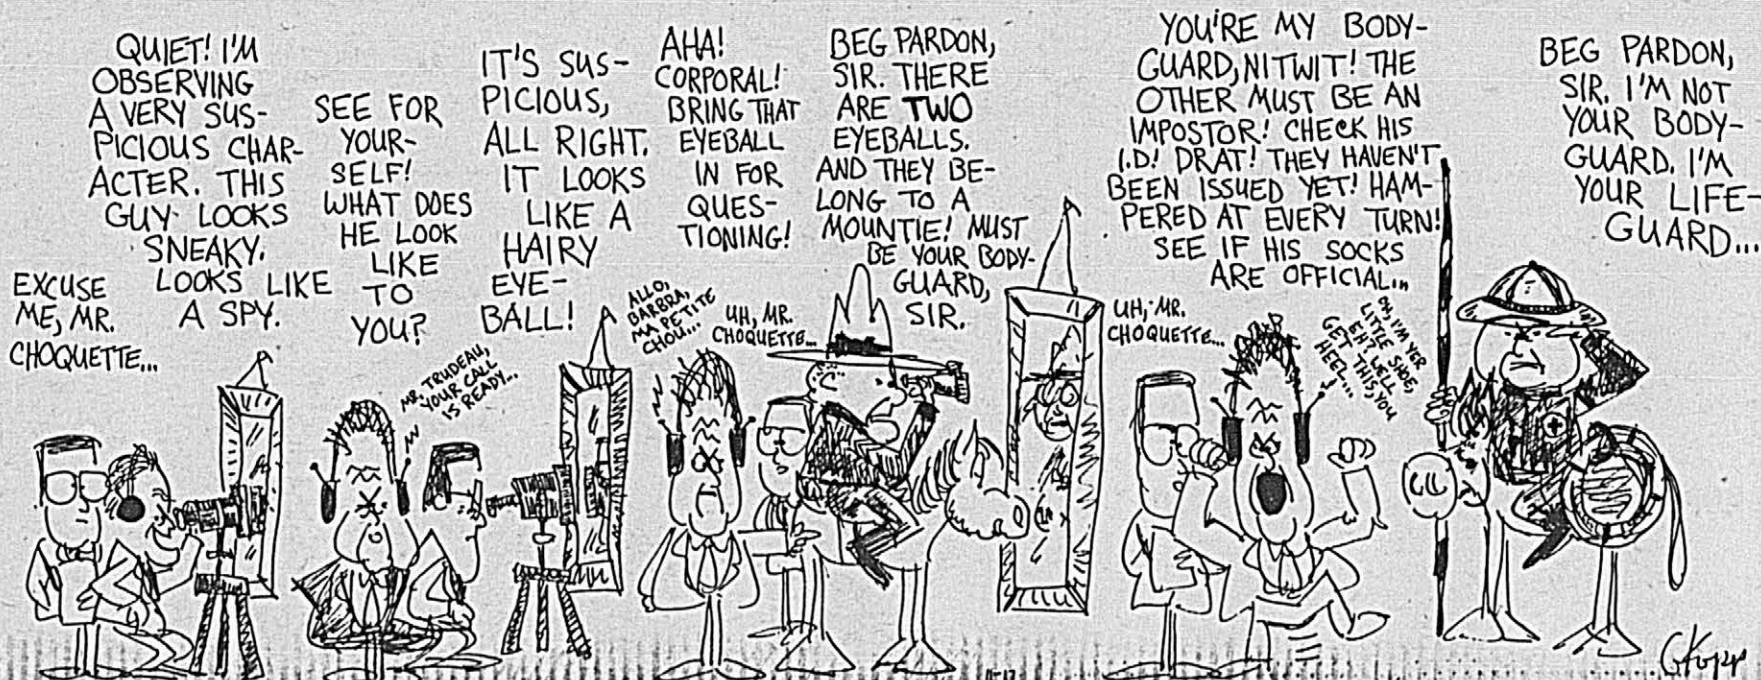 EXCUSE
ME, MR.
CHOQUETTE...
QUIET! I'M
OBSERVING
A VERY SUS-
PICIOUS CHAR-
ACTER. THIS
GUY LOOKS
SNEAKY.
LOOKS LIKE
A SPY.
SEE FOR
YOUR-
SELF!
WHAT DOES
HE LOOK
LIKE
TO
YOU?
MR. TRUDEAU,
YOUR CALL
IS READY...
IT'S SUS-
PICIOUS,
ALL RIGHT.
IT LOOKS
LIKE A
HAIRY
EYE-
BALL!
ALLO,
BARBRA,
MA PETITE
CHOU...
AHA!
CORPORAL!
BRING THAT
EYEBALL
IN FOR
QUES-
TIONING!
UH, MR.
CHOQUETTE...
BEG PARDON,
SIR. THERE
ARE TWO
EYEBALLS.
AND THEY BE-
LONG TO A
MOUNTIE! MUST
BE YOUR BODY-
GUARD,
SIR.
UH, MR.
CHOQUETTE...
YOU'RE MY BODY-
GUARD, NITWIT! THE
OTHER MUST BE AN
IMPOSTOR! CHECK HIS
I.D! DRAT! THEY HAVEN'T
BEEN ISSUED YET! HAM-
PERED AT EVERY TURN!
SEE IF HIS SOCKS
ARE OFFICIAL...
OH, I'M YER
LITTLE SHOE,
EH? WELL
GET THIS, YOU
HEEL...
BEG PARDON,
SIR. I'M NOT
YOUR BODY-
GUARD. I'M
YOUR LIFE-
GUARD...
GKopp